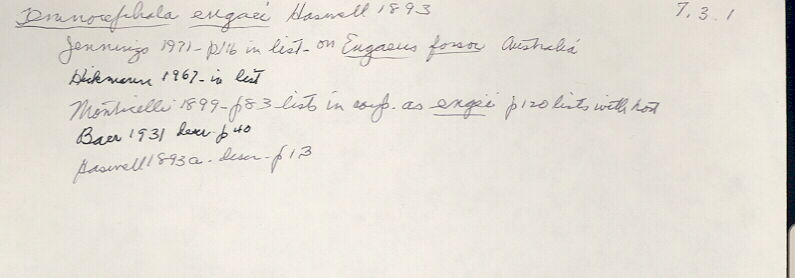 Temnocephala engaei Haswell 1893 7.3.1
Jennings 1971 - p116 in list - on Engaeus fossor Australia
Hickman 1967 - in list
Monticelli 1899 - p83 lists in comp. as engei p120 lists with host
Baer 1931 descr. p40
Haswell 1893a - descr - p13